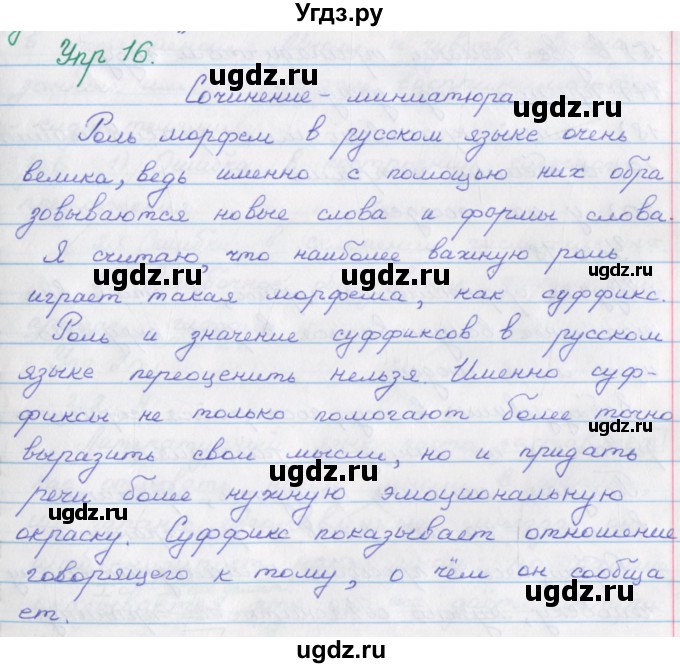 Угдз.ру
Упр 16.
ugdz.ru
Сочинение - миниатюра
ugdz.ru
Роль морфем в русском языке очень
ugdz.ru
велика, ведь именно с помощью них обра
ugdz.ru
зовываются новые слова и формы слова.
Я считаю, что наиболее важную роль
ugdz.ru ugdz.ru ugdz.ru
играет такая морфема, как суффикс.
Роль и значение суффиксов в русском
ugdz.ru
языке переоценить нельзя. Именно суф-
фиксы не только помогают более точно
ugdz.ru
выразить свои мысли, но и придать
ugdz.ru
речи более нужную эмоциональную
ugdz.ru
окраску. Суффикс показывает отношение
ugdz.ru
говорящего к тому, о чём он сообща
ет.
ugdz.ru